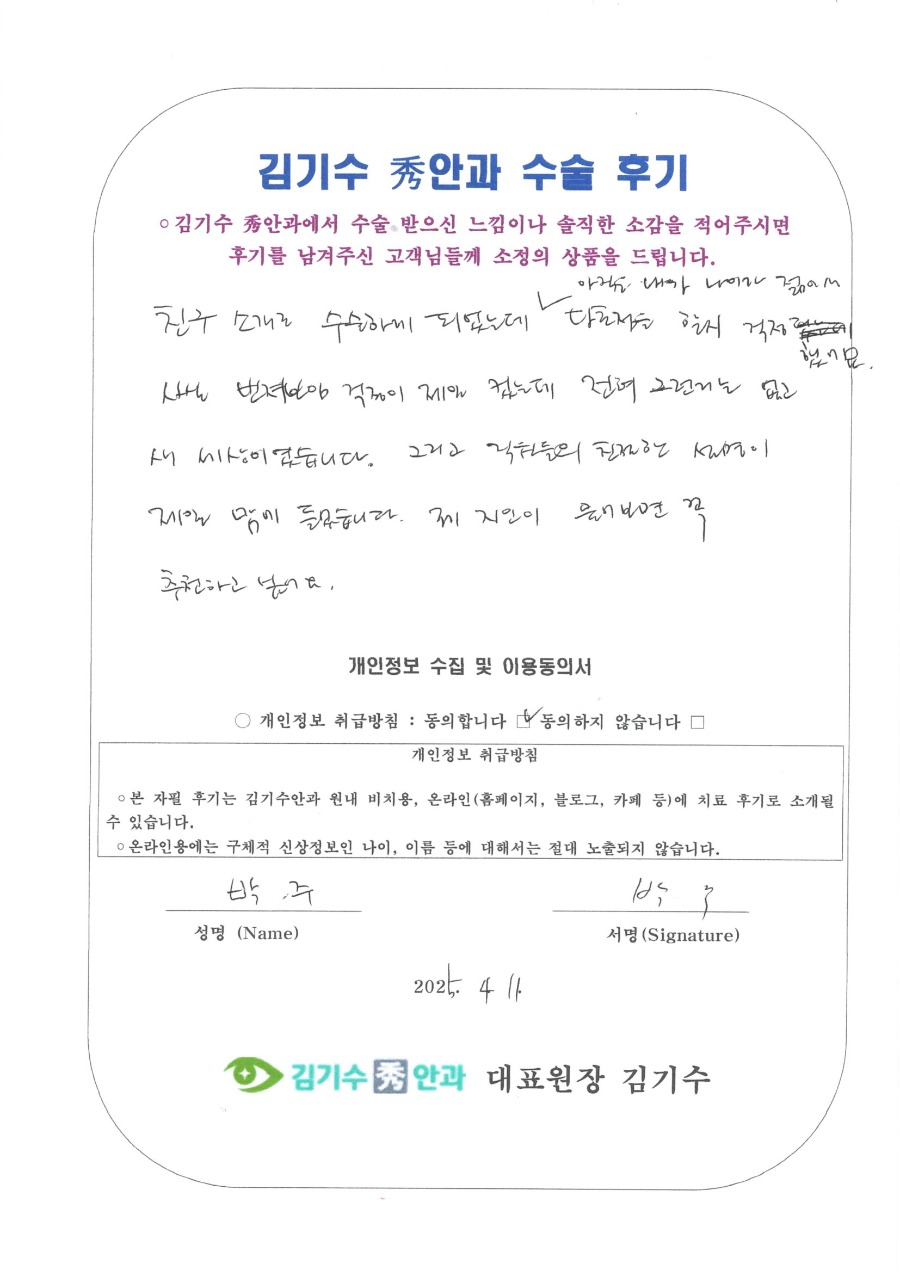 김기수 秀안과 수술 후기
○ 김기수 秀안과에서 수술 받으신 느낌이나 솔직한 소감을 적어주시면
후기를 남겨주신 고객님들께 소정의 상품을 드립니다.
아직은 내가 나이가 젊어서
친구 소개로 수술하게 되었는데 ✓ 다초점을 할지 걱정
했어요.
번져보임 걱정이 제일 컸는데 전혀 그런지는 없고
새 세상이었습니다. 그리고 직원들의 친절한 설명이
제일 맘에 들었습니다. 제 지인이 물어보면 꼭
추천하고 싶어요.
개인정보 수집 및 이용동의서
○ 개인정보 취급방침 : 동의합니다 ☑ 동의하지 않습니다 □
개인정보 취급방침
○ 본 자필 후기는 김기수안과 원내 비치용, 온라인(홈페이지, 블로그, 카페 등)에 치료 후기로 소개될
수 있습니다.
○ 온라인용에는 구체적 신상정보인 나이, 이름 등에 대해서는 절대 노출되지 않습니다.
박 주 박
성명 (Name) 서명(Signature)
2025. 4 11.
김기수 秀 안과 대표원장 김기수